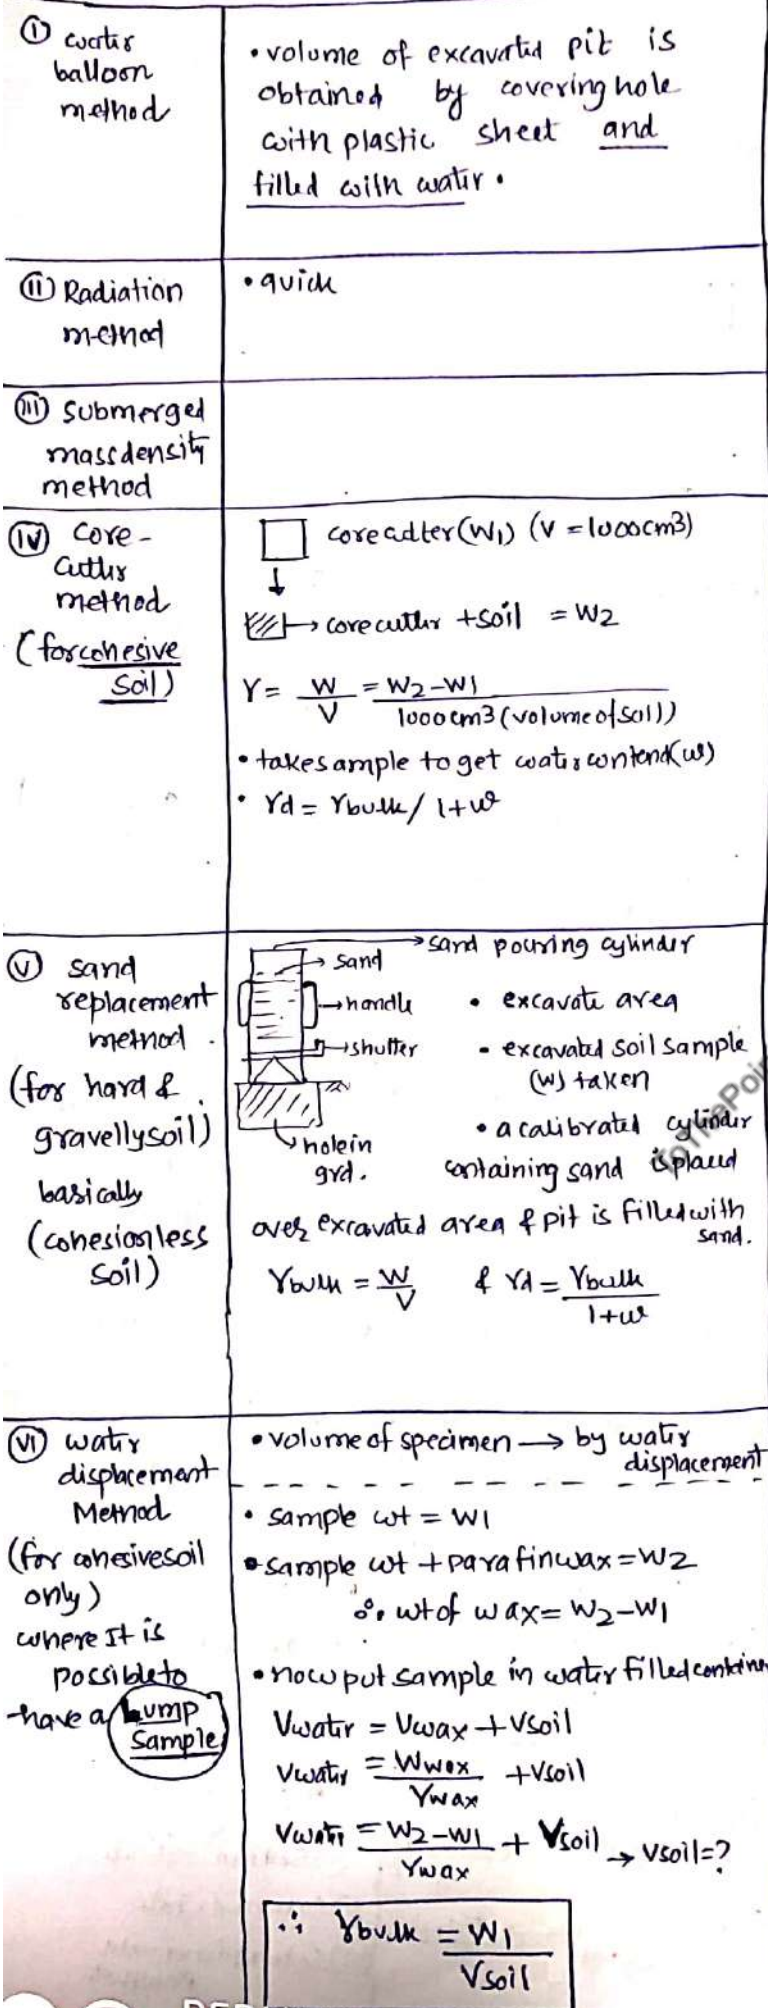 ① water
balloon
method
• volume of excavated pit is
obtained by covering hole
with plastic sheet and
filled with water •
② Radiation
method
• quick
③ submerged
mass density
method
④ core-
cutter
method
(for cohesive
soil)
core cutter (W1) (V = 1000 cm3)
core cutter + soil = W2
γ = W/V = W2-W1/1000 cm3 (volume of soil)
• take sample to get water contend (w)
• γd = γbulk / 1+w
⑤ sand
replacement
method
(for hard &
gravelly soil)
basically
(cohesionless
soil)
sand pouring cylinder
sand
handle
shutter
hole in
grd.
• excavate area
- excavated soil sample
(W) taken
• a calibrated cylinder
containing sand is placed
over excavated area & pit is filled with
sand.
γbulk = W/V & γd = γbulk/1+w
⑥ water
displacement
Method
(for cohesive soil
only)
where It is
possible to
have a Lump
Sample
• volume of specimen → by water
displacement
• sample wt = W1
• sample wt + parafin wax = W2
∴ wt of wax = W2-W1
• now put sample in water filled container
Vwater = Vwax + Vsoil
Vwater = Wwax/γwax + Vsoil
Vwater = W2-W1/γwax + Vsoil → Vsoil = ?
∴ γbulk = W1/Vsoil